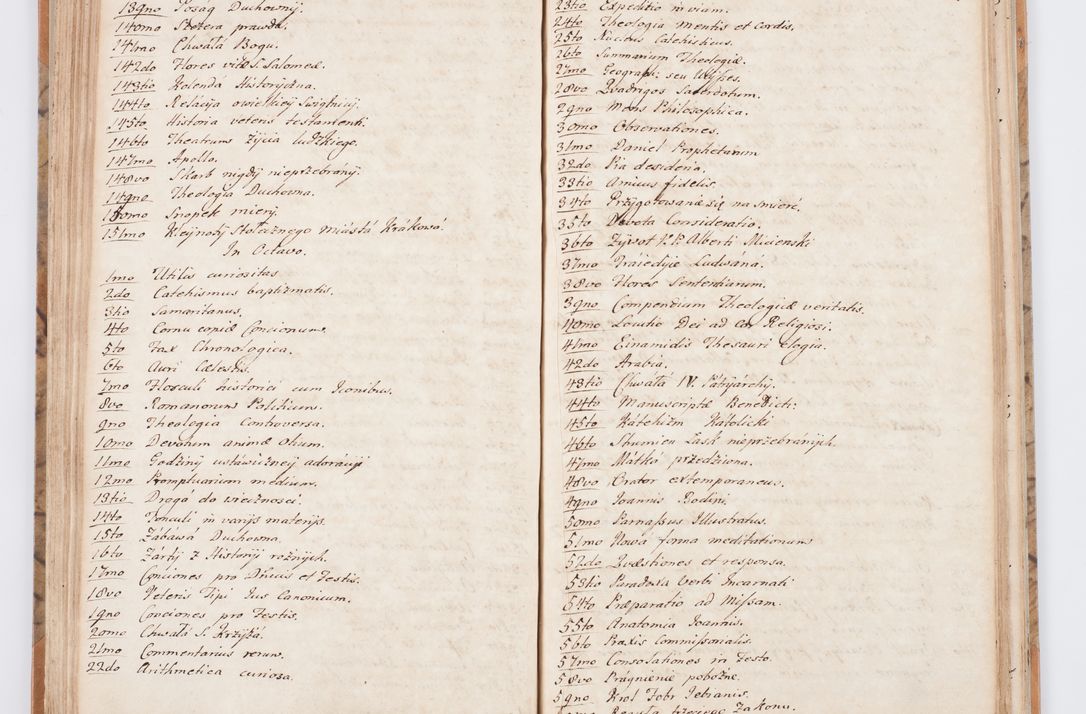 139no Posag Duchownij.
140mo Szczera prawda.
141mo Chwała Bogu.
142do Flores vitæ S. Salomeæ.
143tio Kolenda Historyczna.
144to Relácija owielkiey Swiątnicij.
145to Historia veteris testamenti.
146to Theatrum Zijcia ludzkiego.
147mo Apollo.
148vo Skarb nigdij nieprzebránij.
149no Theologia Duchowna.
150mo Snopek mirrij.
151mo Kleynotij Stołecznego Miástá Krákowá.
In Octavo.
1mo Utilis curiositas
2do Catehismus baptizmatis.
3tio Samaritanus.
4to Cornu copiæ Concionum.
5to Fax Chronologica.
6to Auri Cælestis.
7mo Flosculi historici cum Iconibus.
8vo Romanorum Politicum.
9no Theologia Controversa.
10mo Devotum animæ Otium.
11mo Godzinij ustáwiczneij adorácij
12mo Promptuarium medium.
13tio Drogá do wiecznosci.
14to Ionculi in varijs materijs.
15to Zábáwá Duchowna.
16to Zártij z Historij roznijch.
17mo Conciones pro Dncis et Festis.
18vo Veteris Tipi Ius Canonicum.
19no Conciones pro Festis.
20mo Chwałá S. Krzÿżá.
21mo Commentarius rerum.
22do Arithmetica curiosa.
23tio Expeditio in viam.
24to Theologia Mentis et Cordis.
25to Nucleus Catehisticus.
26to Summarium Theologiæ.
27mo Geograph: seu Ulysses.
28vo Quadrigos Sacerdotum.
29no Mons Philosophica.
30mo Observationes.
31mo Daniel Prophetarum
32do Pia desideria.
33tio Amicus fidelis.
34to Przygotowanie się na smierć.
35to Devota Consideratio.
36to Zÿwot P. P. Alberti Micienski
37mo Tráiedijæ Ludwáná.
38vo Flores Sententiarum.
39no Compendium Theologicæ veritatis.
40mo Locutio Dei ad Cor Religiosi.
41mo Einamidis Thesauri elogia.
42do Arabia.
43tio Chwałá IV. Pátryárchij.
44to Manuscriptæ Benedicti:
45to Kátehizm Katolicki
46to Strumien Łask nieprzebranijch.
47mo Mátká przedziwna.
48vo Orator extemporaneus.
49no Ioannis Bodini.
50mo Parnassus Illustratus.
51mo Nowá forma meditationum
52do Quæstiones et responsa.
53tio Paradoxa Verbi Incarnati
54to Præparatio ad Missam.
55to Anatomia Ioannis.
56to Praxis Commissonalis.
57mo Consolationes in Festo.
58vo Prágnienie pobożne.
59no Krol Febr Zebranis.
Reguła trzeciego Zakonu.